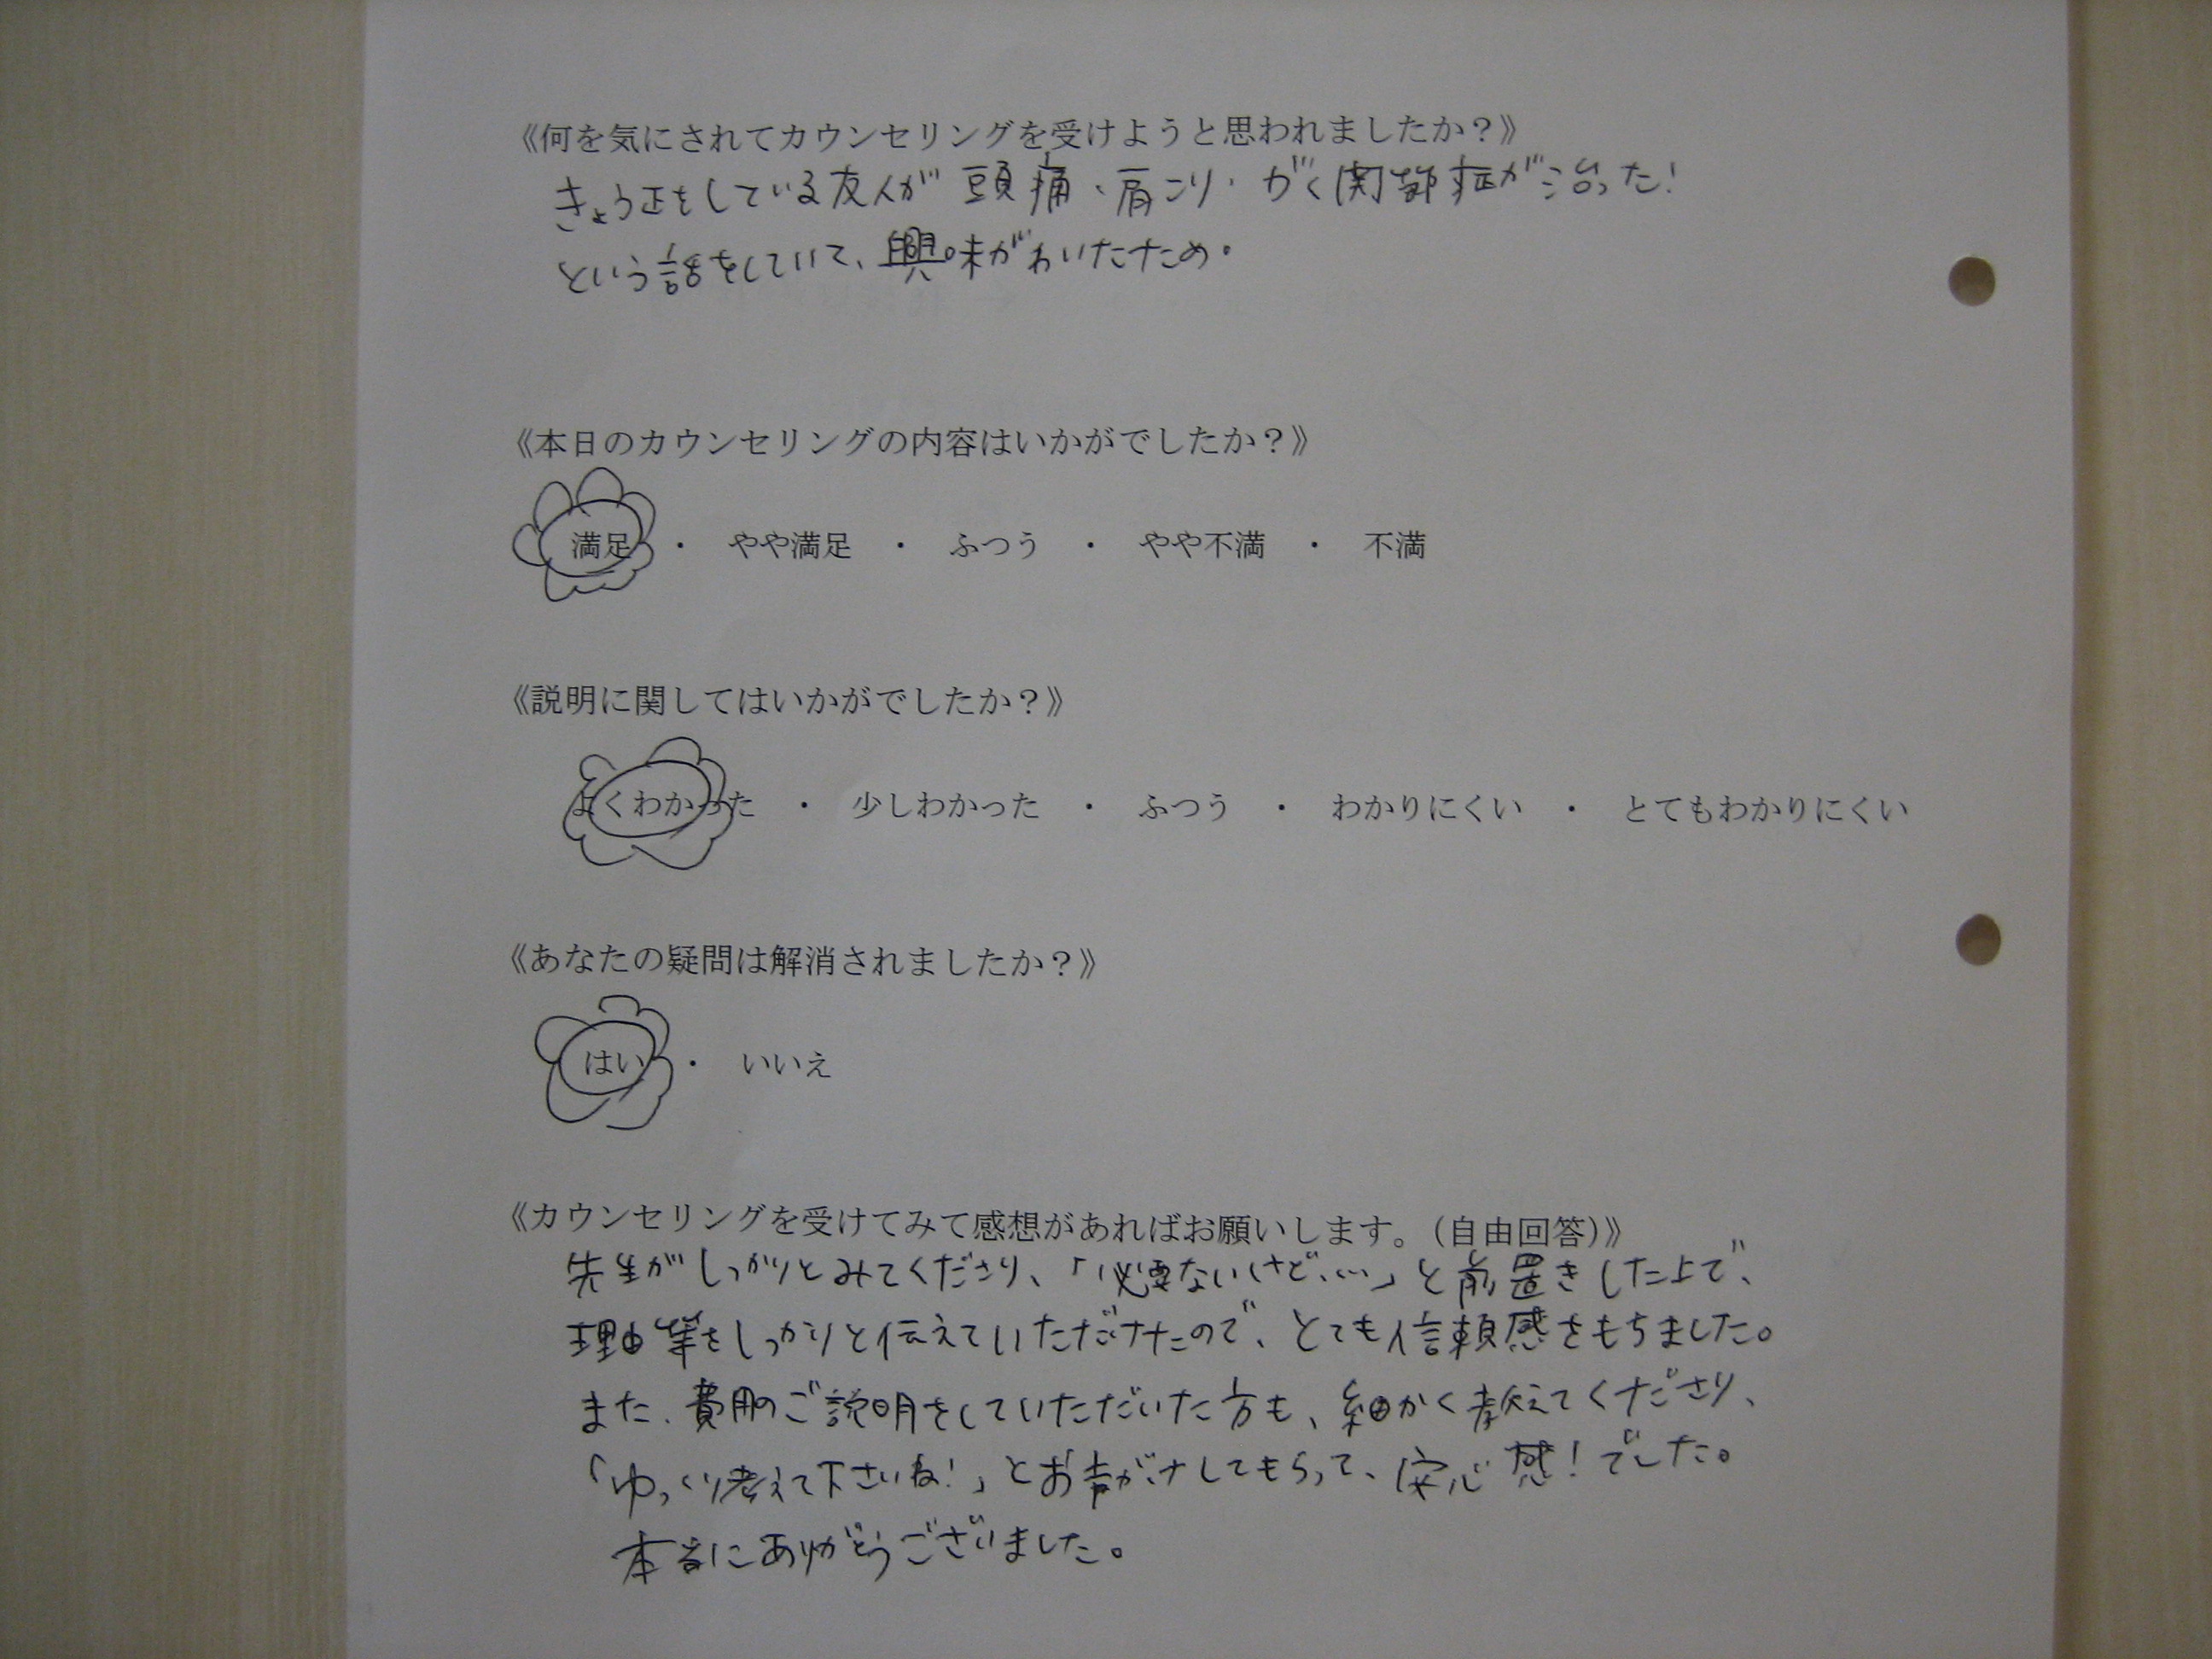 《何を気にされてカウンセリングを受けようと思われましたか？》
きょう正をしている友人が頭痛・肩こり・がく関節症が治った！
という話をしていて、興味がわいたため。
《本日のカウンセリングの内容はいかがでしたか？》
満足 ・ やや満足 ・ ふつう ・ やや不満 ・ 不満
《説明に関してはいかがでしたか？》
よくわかった ・ 少しわかった ・ ふつう ・ わかりにくい ・ とてもわかりにくい
《あなたの疑問は解消されましたか？》
はい ・ いいえ
《カウンセリングを受けてみて感想があればお願いします。（自由回答）》
先生がしっかりとみてくださり、「必要ないけど、…」と前置きした上で、
理由等をしっかりと伝えていただけたので、とても信頼感をもちました。
また、費用のご説明をしていただいた方も、細かく教えてくださり、
「ゆっくり考えて下さいね！」とお声がけしてもらって、安心感！でした。
本当にありがとうございました。